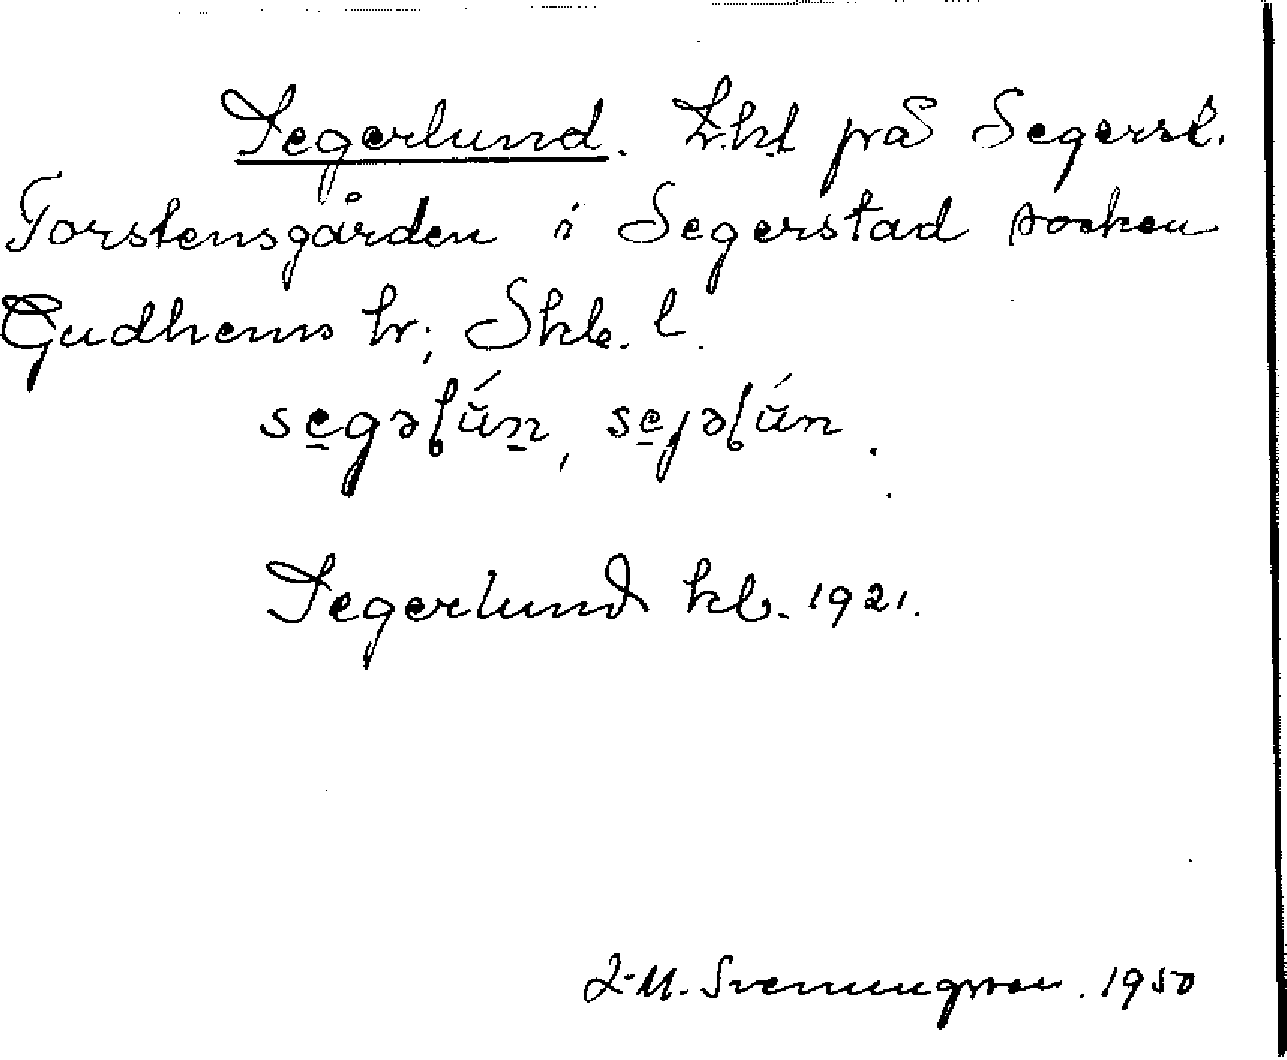 Segerlund. Lht på Segerst.
Torstensgården i Segerstad socken
Gudhems hr; Skb. l.
segəlún, sejəlún.
Segerlund kb. 1921.
L-M. Svenungsson. 1950